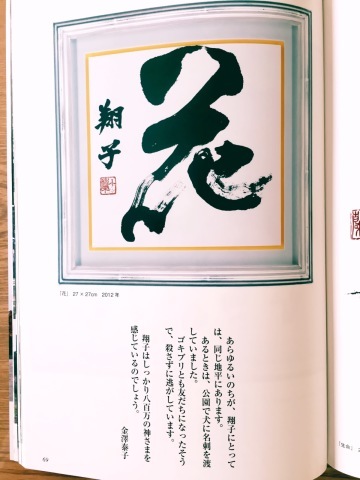 花
翔子
「花」 27×27cm 2012年
あらゆるいのちが、翔子にとって
は、同じ地平にあります。
あるときは、公園で犬に名刺を渡
していました。
ゴキブリとも友だちになったそう
で、殺さずに逃がしています。
翔子はしっかり八百万の神さまを
感じているのでしょう。
金澤泰子
69